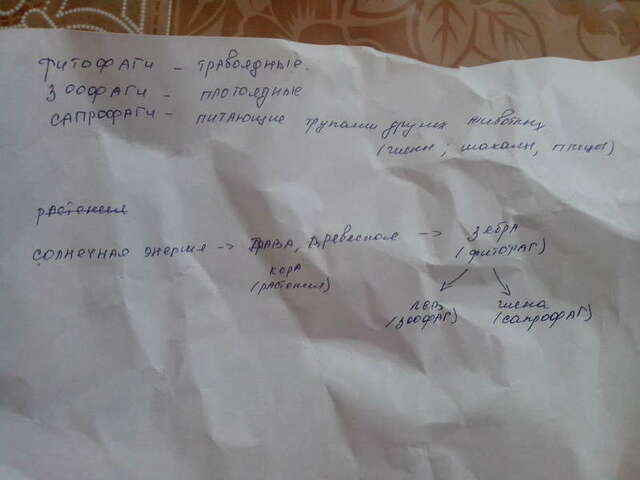 ФИТОФАГИ - ТРАВОЯДНЫЕ.
ЗООФАГИ - ПЛОТОЯДНЫЕ
САПРОФАГИ - ПИТАЮЩИЕ трупами других животных
(гиены, шакалы, птицы)
растения
СОЛНЕЧНАЯ ЭНЕРГИЯ -> ТРАВА, древесная -> ЗЕБРА
КОРА (ФИТОФАГ)
(РАСТЕНИЯ)
ЛЕВ гиена
(ЗООФАГ) (САПРОФАГ)